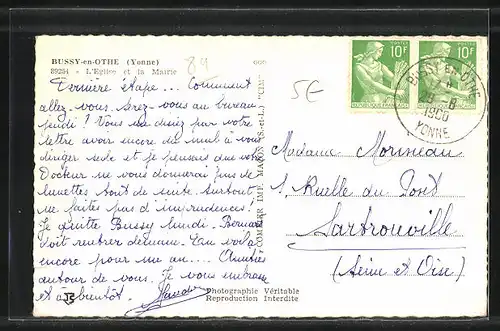 BUSSY-en-OTHE (Yonne)
89254 - L'Eglise et la Mairie
89
Dernière étape ... Comment
allez-vous. Serez-vous au bureau
jeudi ? Vous me disiez par votre
lettre avoir encore du mal à vous
diriger seule et je pensais que votre
Docteur ne vous donnerait pas de
lunettes tout de suite. Surtout
ne faites pas d'imprudences !
Je quitte Bussy lundi. Bernard
doit rentrer demain. Eau voilà
encore pour me au .... Amitiés
autour de vous. Je vous embrasse
et à bientôt.
COMBIER IMP. MACON (S.-et-L.) "CIM"
Photographie Véritable
Reproduction Interdite
5€
POSTES
10F
RÉPUBLIQUE FRANÇAISE
POSTES
10F
BUSSY-EN-OTHE
8
1960
YONNE
Madame Morineau
1, Ruelle du Pont
Sartrouville
(Seine et Oise)